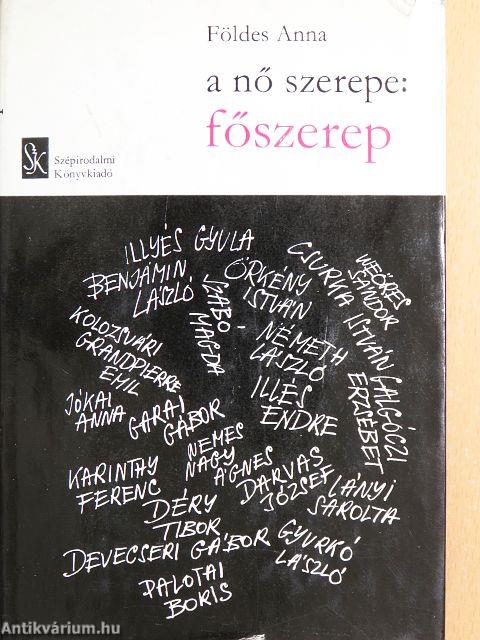 Földes Anna
a nő szerepe:
főszerep
SzK
Szépirodalmi
Könyvkiadó
ILLYÉS GYULA
BENJÁMIN
LÁSZLÓ
SZABÓ
MAGDA
ÖRKÉNY
ISTVÁN
CSURKA ISTVÁN
WEÖRES
SÁNDOR
KOLOZSVÁRI
GRANDPIERRE
EMIL
NÉMETH
LÁSZLÓ
GALGÓCZI
ERZSÉBET
JÓKAI
ANNA
GARAI
GÁBOR
ILLÉS
ENDRE
KARINTHY
FERENC
NEMES
NAGY
ÁGNES
DARVAS
JÓZSEF
LÁNYI
SAROLTA
DÉRY
TIBOR
DEVECSERI GÁBOR
GYURKÓ
LÁSZLÓ
PALOTAI
BORIS
Antikvárium.hu